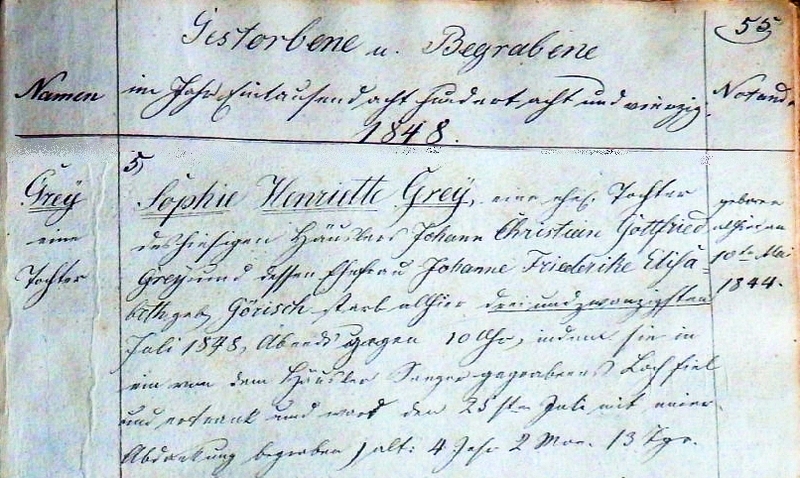 55
Gestorbene u. Begrabene
Namen
im Jahr Eintausend acht hundert acht und vierzig.
Notand.
1848.
5)
Grey
eine
Tochter
Sophie Henriette Grey, eine ehel. Tochter
des hiesigen Häuslers Johann Christian Gottfried
Grey und dessen Ehefrau Johanne Friederike Elisa-
beth geb. Görisch starb alhier drei und zwanzigsten
Juli 1848, Abends gegen 10 Uhr, indem sie in
ein von dem Häusler gegrabenes Loch fiel
und ertrank und ward den 25sten Juli mit einer
Abdankung begraben, alt: 4 Jahr 2 Mon. 13 Tge.
geboren
alhier an
10ten Mai
1844.